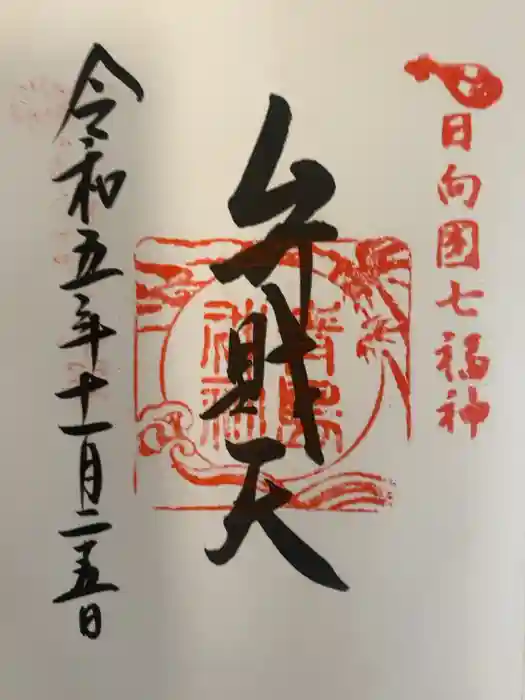 日向国七福神
弁財天
青島神社
令和五年十一月二五日